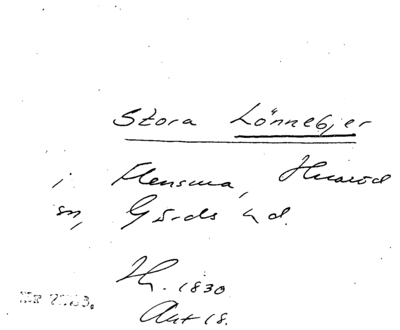 Stora Lönnebjer
i Flensma, Huaröd
sn, Gärds hd.
Th. 1830
Akt 18.